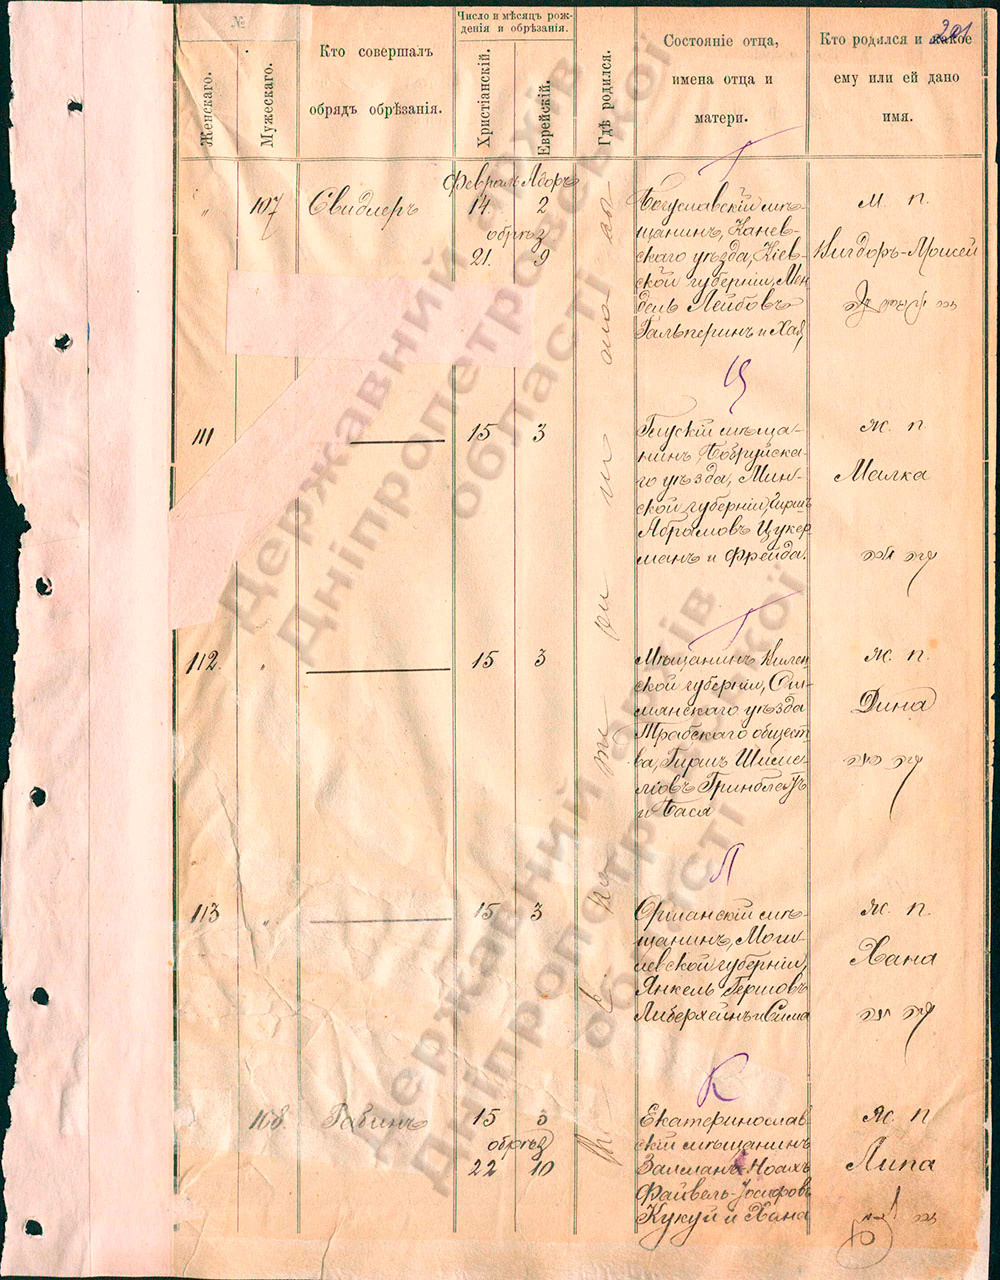 201
№
Женскаго.
Мужескаго.
Кто совершалъ
обрядъ обрѣзанія.
Число и мѣсяцъ рож-
денія и обрѣзанія.
Христіанскій.
Еврейскій.
Гдѣ родился.
Состояніе отца,
имена отца и
матери.
Кто родился и какое
ему или ей дано
имя.
Г
Февраль Адоръ
„ 107 Свидлеръ 14. 2
обрѣз
21. 9
Богуславскій мѣ-
щанинъ, Канев-
скаго уѣзда, Кіев-
ской губерніи, Мен
дель Лейбовъ
Гальперинъ и Хая,
М. п.
Вигдоръ-Моисей
Ц
111 15 3
Глускій мѣща-
нинъ, Бобруйска-
го уѣзда, Мин-
ской губерніи, Гиршъ
Абрамовъ Цукер
манъ и Фрейда.
Ж. п.
Малка
Г
112. „ 15 3
Мѣщанинъ Вилен
ской губерніи, Ош-
мянскаго уѣзда
Трабскаго общест
ва, Гиршъ Шиме-
лювъ Гринблатъ
и Бася
Ж. п.
Дина
Л
113 „ 15 3
Оршанскій мѣ-
щанинъ, Моги-
левской губерніи,
Янкель Гершовъ
Либерхенъ и Сима
Ж. п.
Хана
К
108. Рабинъ 15 3
обрѣз
22 10
Екатеринослав
скій мѣщанинъ
Залманъ-Ноахъ
Файвель-Іосифовъ
Кукуй и Хана
Ж. п
Липа
Державний архів
Дніпропетровської
області
Державний архів
Дніпропетровської
області